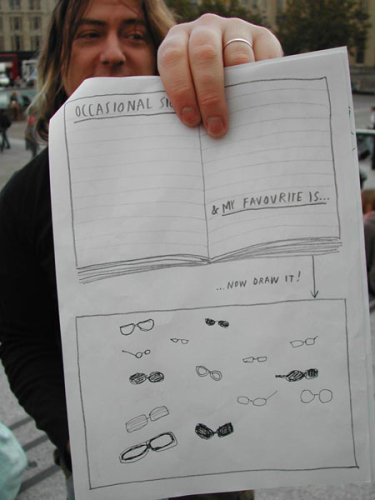 OCCASIONAL
& MY FAVOURITE IS...
...NOW DRAW IT!